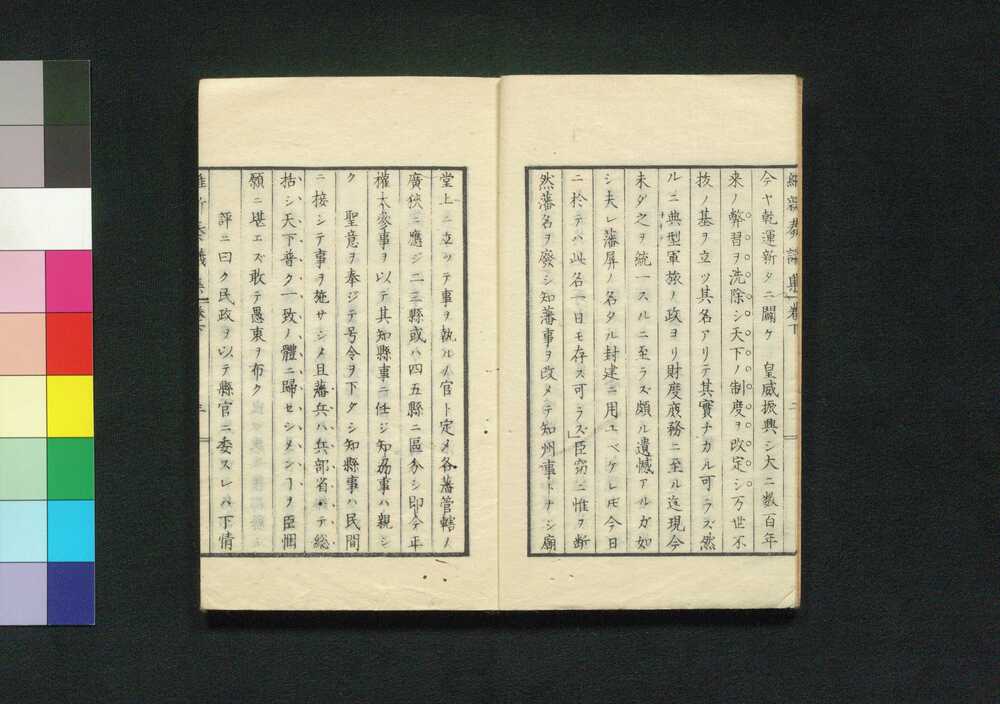 今ヤ乾運新タニ開ケ　皇威振興シ大ニ数百年
来ノ弊習ヲ洗除シ天下ノ制度ヲ改定シ万世不
抜ノ基ヲ立ツ其名アリテ其實ナカル可ラズ然
ルニ典型軍旅ノ政ヨリ財度庶務ニ至ル迄現今
未ダ之ヲ統一スルニ至ラズ頗ル遺憾アルガ如
シ夫レ藩屏ノ名タル封建ニ用ユベケレ𪜈今日
ニ於テハ此名一日モ存ス可ラズ」臣窃ニ惟ヲ断
然藩名ヲ廢シ知藩事ヲ改メテ知州事トナシ廟
堂上ニ立ツテ事ヲ執ルノ官ト定メ各藩管轄ノ
廣狹ニ應ジ二三縣或ハ四五縣ニ區分シ即今ノ正
權大參事ヲ以テ其知縣事ニ任ジ知州事ハ親シ
ク　聖意ヲ奉ジテ号令ヲ下ダシ知縣事ハ民間
ニ接シテ事ヲ施サシメ且藩兵ハ兵部省ニテ総
括シ天下普ク一致ノ體ニ歸セシメンヿヲ臣悃
願ニ堪エズ敢テ愚衷ヲ布ク
評ニ曰ク民政ヲ以テ縣官ニ委スレハ下情